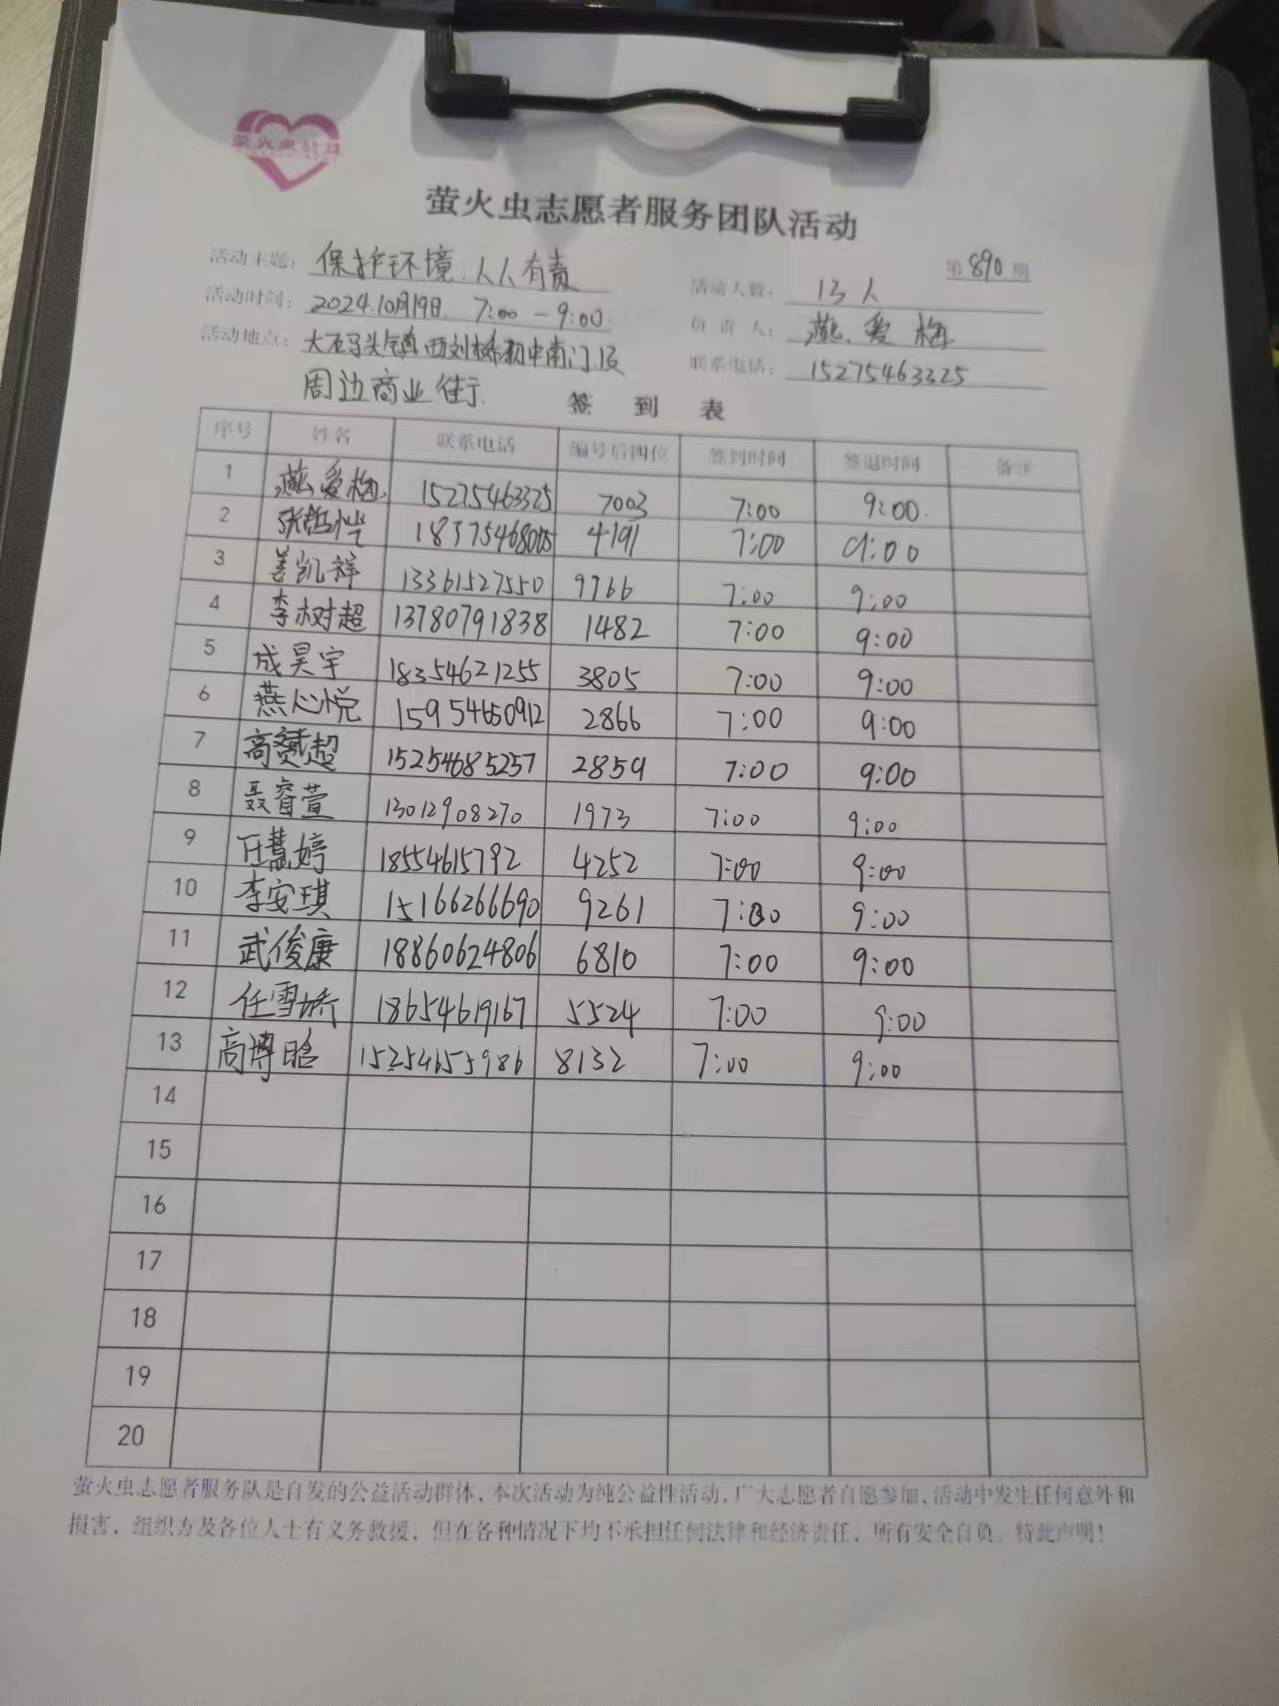 萤火虫志愿者服务团队活动
第890期
活动主题：保护环境.人人有责
活动人数：13人
活动时间：2024.10月19日. 7:00-9:00
负责人：燕爱梅
活动地点：大码头镇西刘桥初中南门及
周边商业街.
联系电话：15275463325
签到表
序号 姓名 联系电话 编号后四位 签到时间 签退时间 备注
1 燕爱梅 15275463325 7003 7:00 9:00
2 张哲恺 4191 7:00 9:00
3 姜凯祥 13361527550 9766 7:00 9:00
4 李树超 13780791838 1482 7:00 9:00
5 成昊宇 18354621255 3805 7:00 9:00
6 燕心悦 15954650912 2866 7:00 9:00
7 高赟超 15254685257 2859 7:00 9:00
8 聂睿萱 13012908270 1973 7:00 9:00
9 任慧婷 18554615792 4252 7:00 9:00
10 李安琪 15166266690 9261 7:00 9:00
11 武俊康 18860624806 6810 7:00 9:00
12 任雪娇 18654619167 5524 7:00 9:00
13 高博晗 15254655986 8132 7:00 9:00
14
15
16
17
18
19
20
萤火虫志愿者服务队是自发的公益活动群体，本次活动为纯公益性活动，广大志愿者自愿参加，活动中发生任何意外和
损害，组织方及各位人士有义务救援，但在各种情况下均不承担任何法律和经济责任，所有安全自负。特此声明！